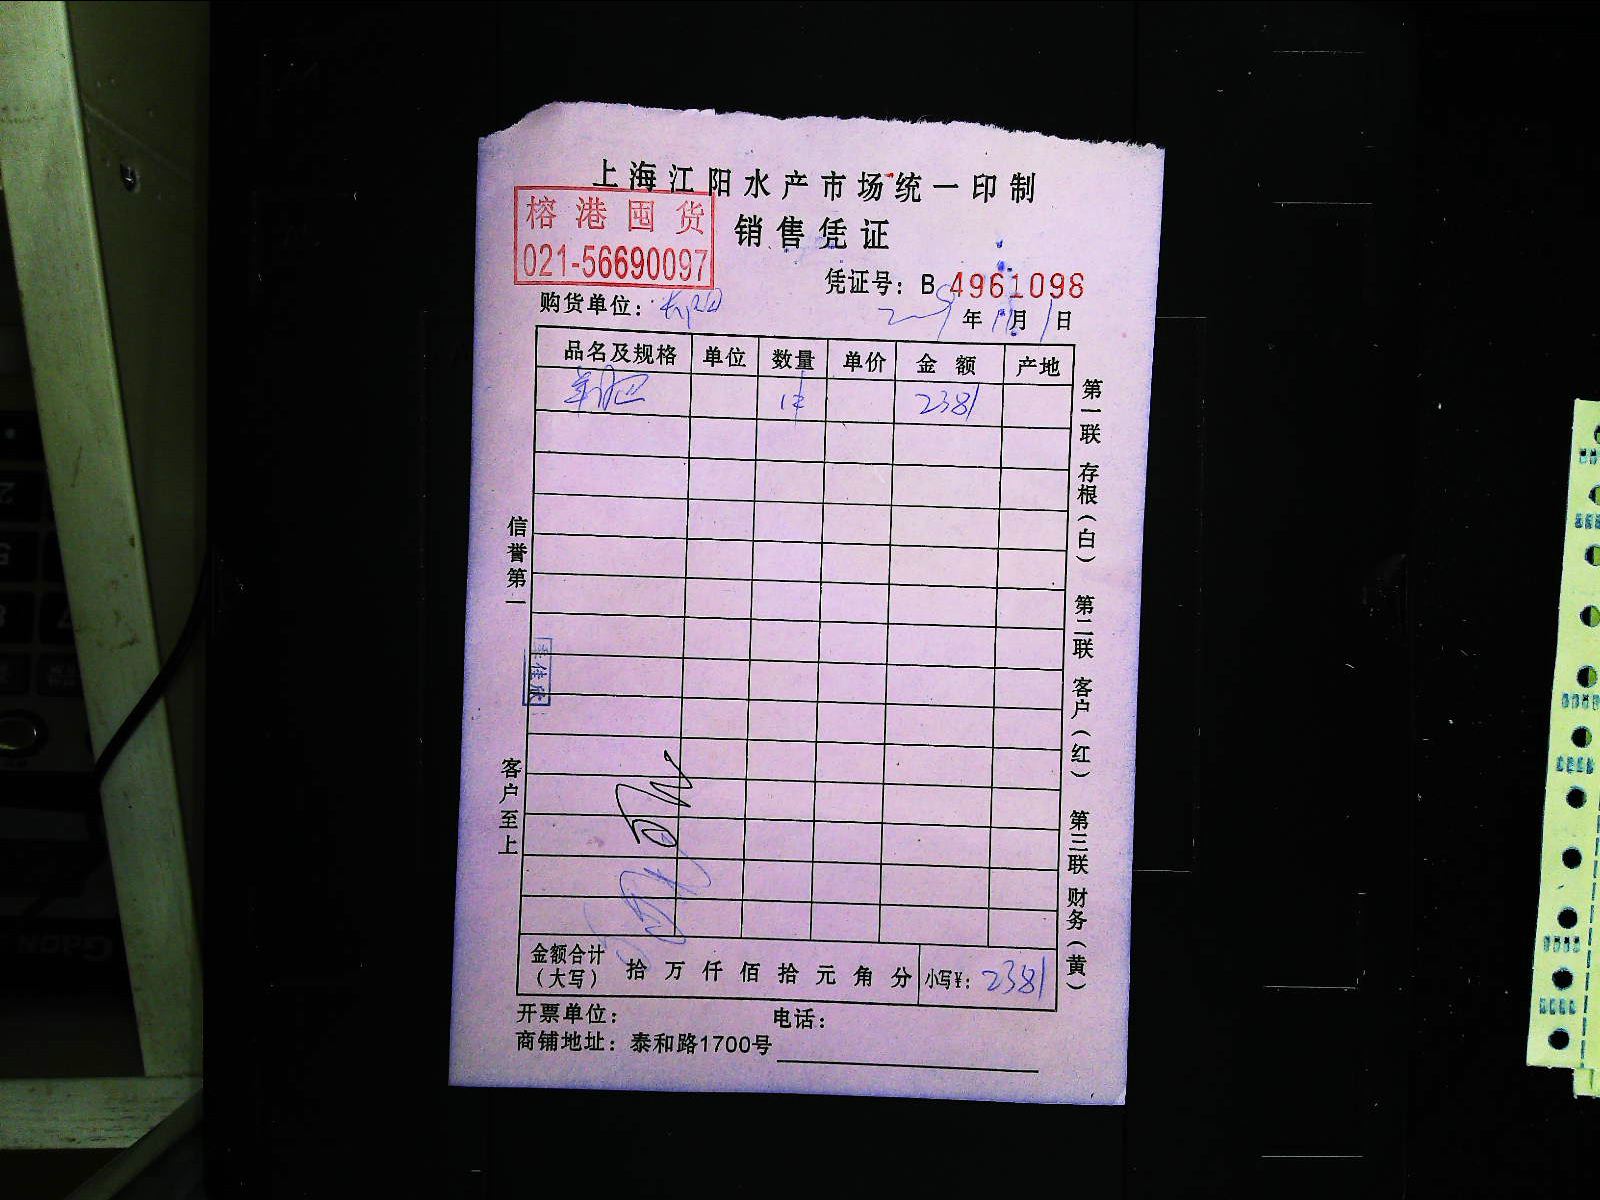 上海江阳水产市场统一印制
榕港囤货
销售凭证
021-56690097
凭证号：B 4961098
购货单位：
年 月 1 日
品名及规格 单位 数量 单价 金额 产地
2381
第一联 存根（白） 第二联 客户（红） 第三联 财务（黄）
信誉第一
李佳欣
客户至上
金额合计（大写） 拾 万 仟 佰 拾 元 角 分 小写¥： 2381
开票单位： 电话：
商铺地址：泰和路1700号